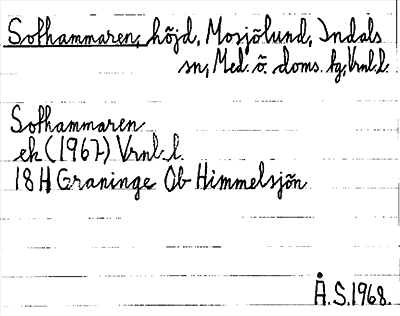 Solhammaren, höjd, Mosjölund, Indals
sn, Med. ö. doms. hg, Vrnl. l.
Solhammaren
ek (1967) Vrnl. l.
18 H Graninge Ob Himmelsjön
Å.S. 1968.